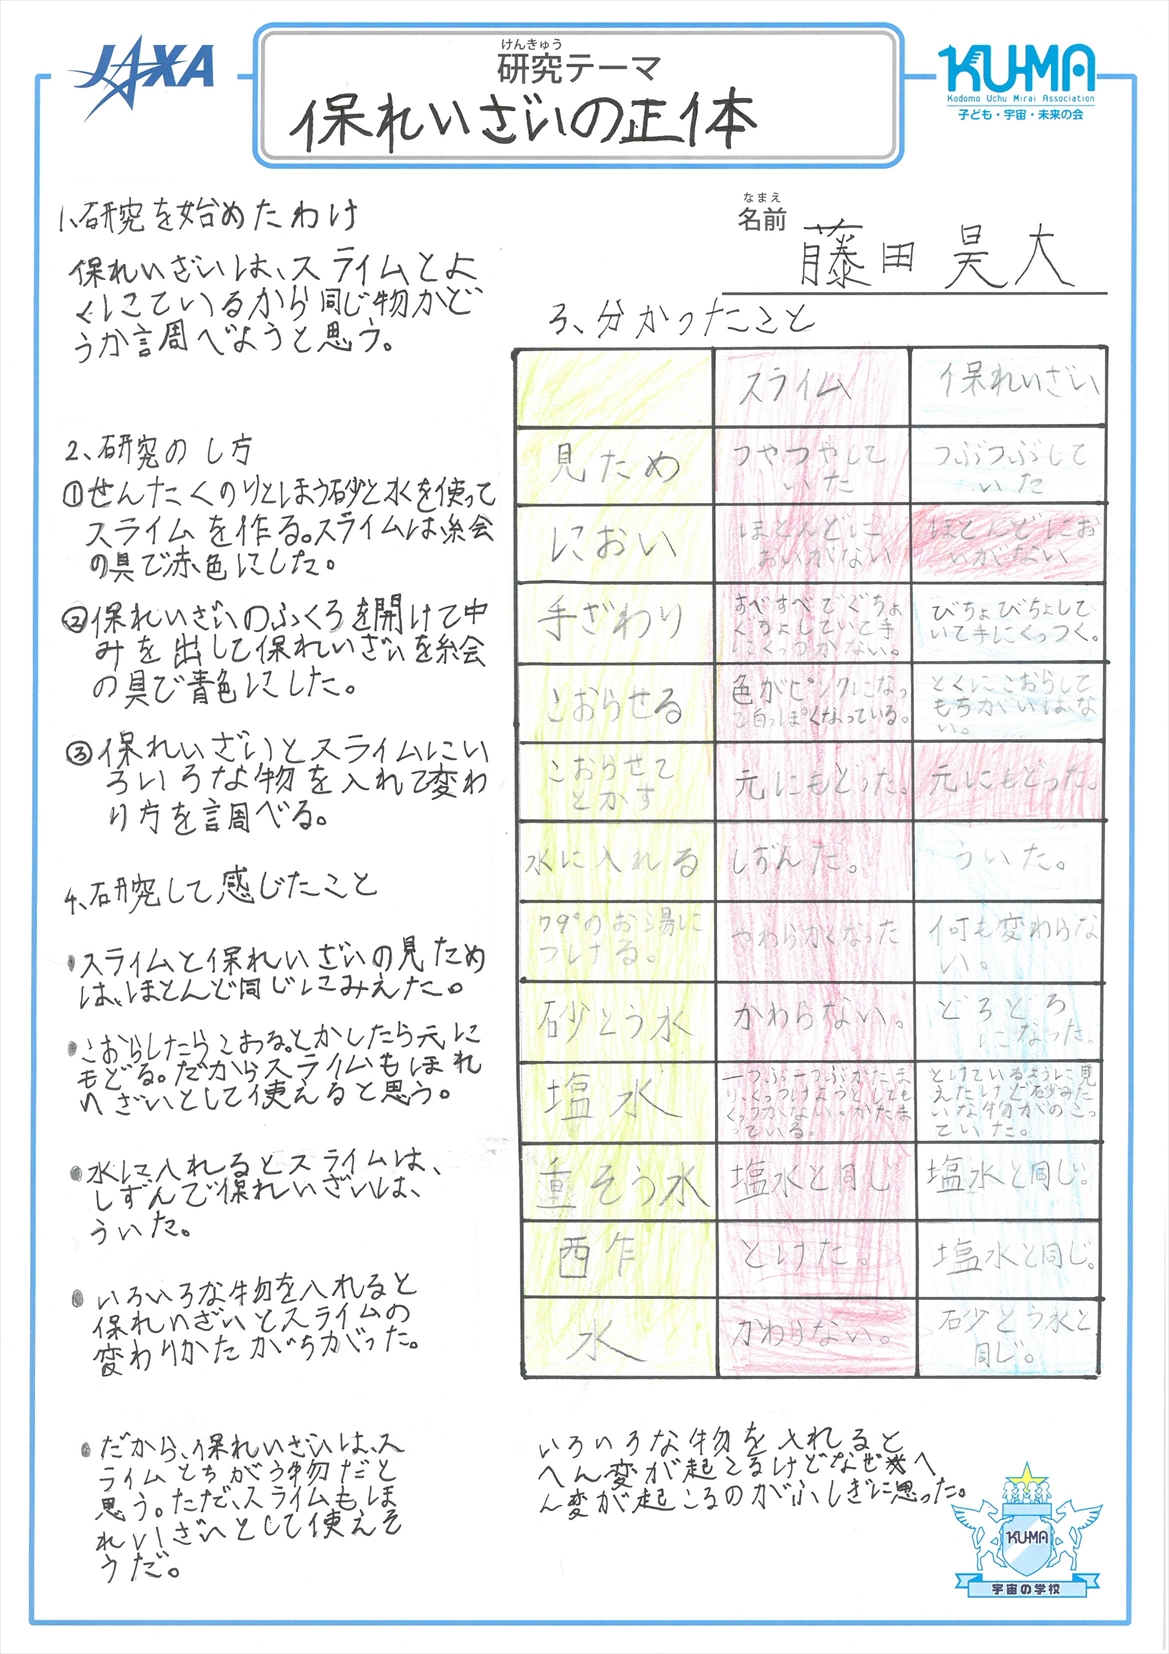 JAXA
けんきゅう
研究テーマ
保れいざいの正体
KU-MA
Kodomo Uchu Mirai Association
子ども・宇宙・未来の会
なまえ
名前
藤田昊大
1、研究を始めたわけ
保れいざいは、スライムとよ
くにているから同じ物かど
うか調べようと思う。
2、研究のし方
①せんたくのりとほう砂と水を使って
スライムを作る。スライムは絵
の具で赤色にした。
②保れいざいのふくろを開けて中
みを出して保れいざいを絵
の具で青色にした。
③保れいざいとスライムにい
ろいろな物を入れて変わ
り方を調べる。
3、分かったこと
スライム
保れいざい
見ため
つやつやして
いた
つぶつぶして
いた
におい
ほとんどに
おいがない
ほとんどにお
いがない
手ざわり
すべすべでぐちょ
ぐちょしていて手
にくっつかない。
びちょびちょして
いて手にくっつく。
こおらせる
色がピンクになっ
て白っぽくなっている。
とくにこおらして
もちがいはな
い。
こおらせて
とかす
元にもどった。
元にもどった。
水に入れる
しずんだ。
ういた。
79°のお湯に
つける。
やわらかくなった
何も変わらな
い。
砂とう水
かわらない。
どろどろ
になった。
塩水
一つぶ一つぶかたま
り、くっつけようとしても
くっつかない。かたま
っている。
とけているように見
えたけど砂みた
いな物がのこっ
ていた。
重そう水
塩水と同じ
塩水と同じ。
酢
とけた。
塩水と同じ。
水
かわらない。
砂とう水と
同じ。
4、研究して感じたこと
・スライムと保れいざいの見ため
は、ほとんど同じにみえた。
・こおらしたらこおる。とかしたら元に
もどる。だからスライムもほれ
いざいとして使えると思う。
・水に入れるとスライムは、
しずんで保れいざいは、
ういた。
・いろいろな物を入れると
保れいざいとスライムの
変わりかたがちがった。
・だから、保れいざいは、ス
ライムとちがう物だと
思う。ただ、スライムもほ
れいざいとして使えそ
うだ。
いろいろな物を入れると
へん変が起こるけどなぜへ
ん変が起こるのがふしぎに思った。
KU-MA
宇宙の学校